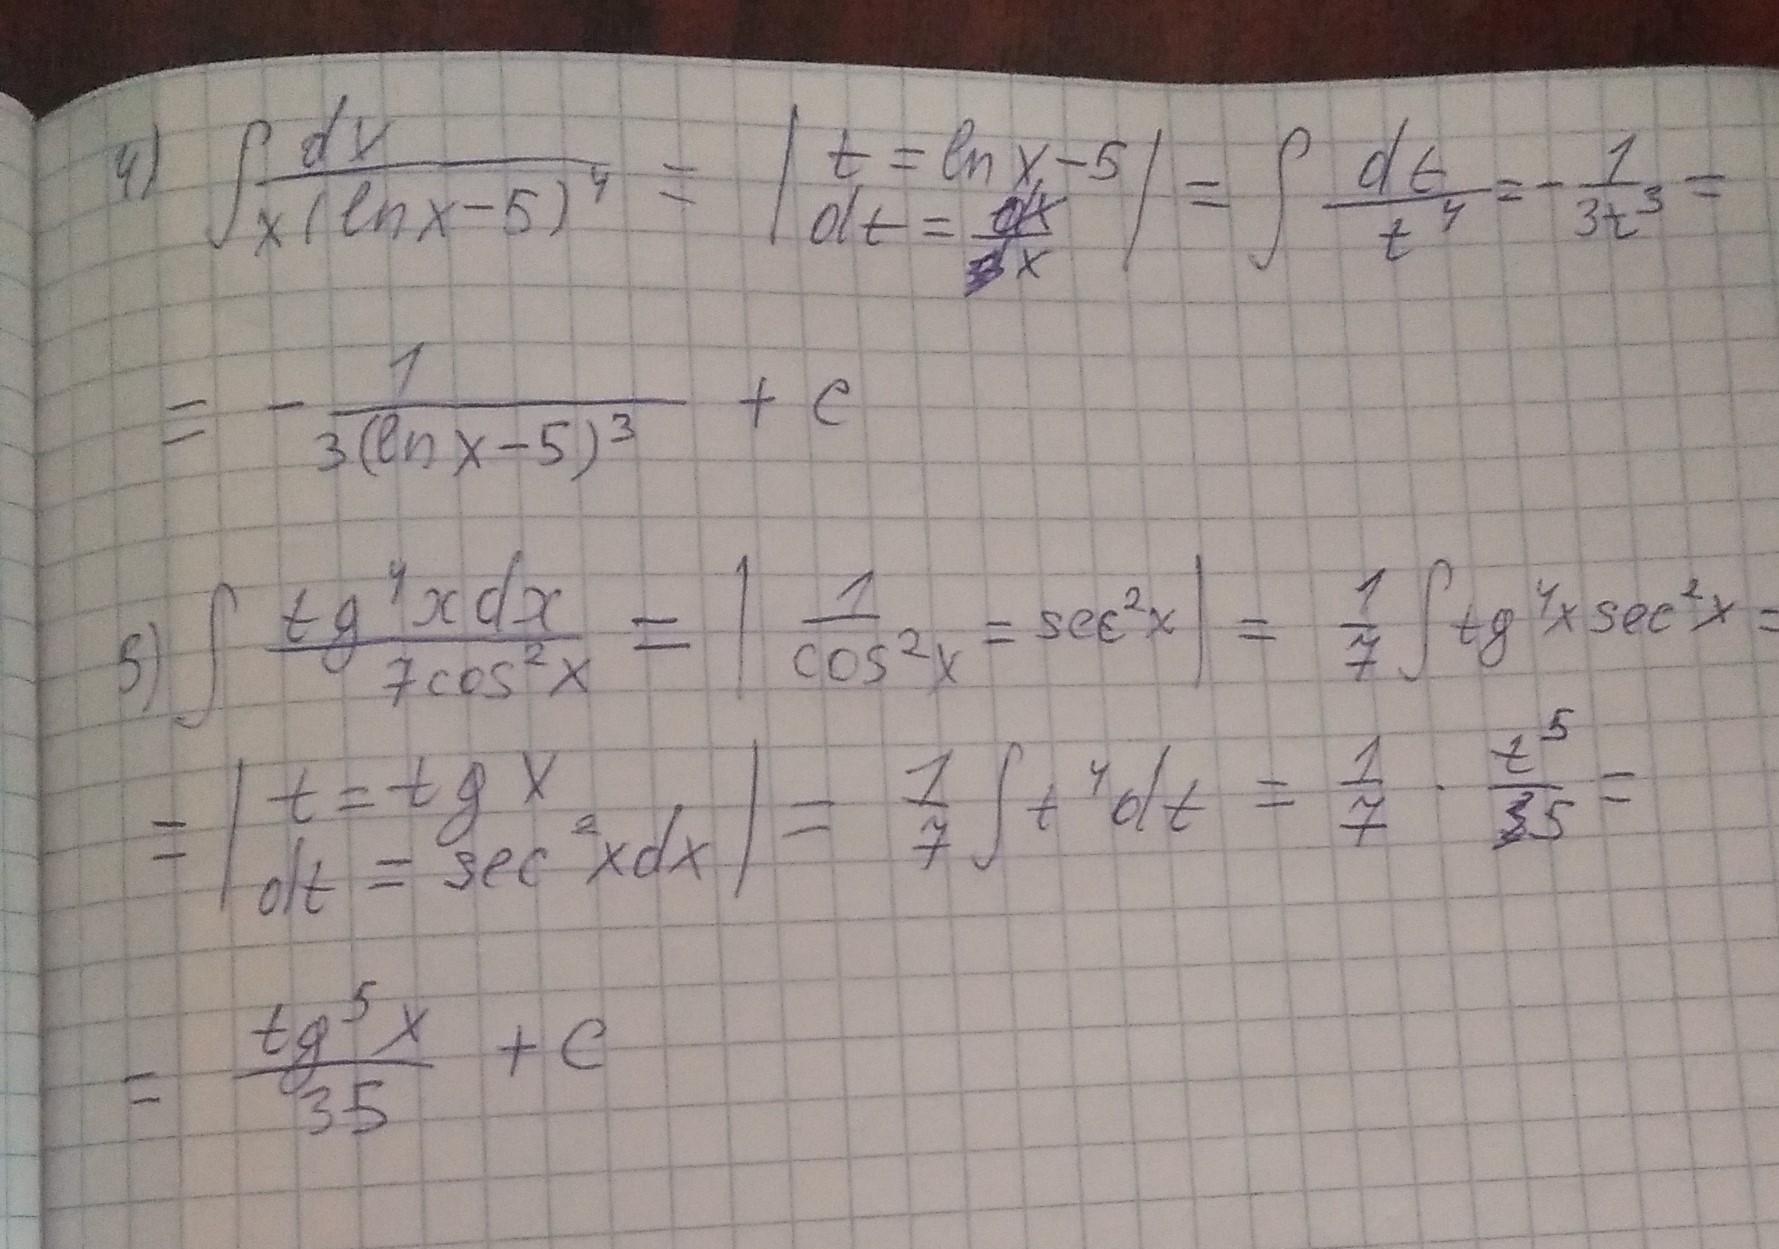 4) ∫ dx / x(ln x - 5)^4 = | t = ln x - 5 dt = dx / x | = ∫ dt / t^4 = - 1 / 3t^3 =
= - 1 / 3(ln x - 5)^3 + C
5) ∫ tg^4 x dx / 7cos^2 x = | 1 / cos^2 x = sec^2 x | = 1/7 ∫ tg^4 x sec^2 x =
= | t = tg x dt = sec^2 x dx | = 1/7 ∫ t^4 dt = 1/7 · t^5 / 5 =
= tg^5 x / 35 + C